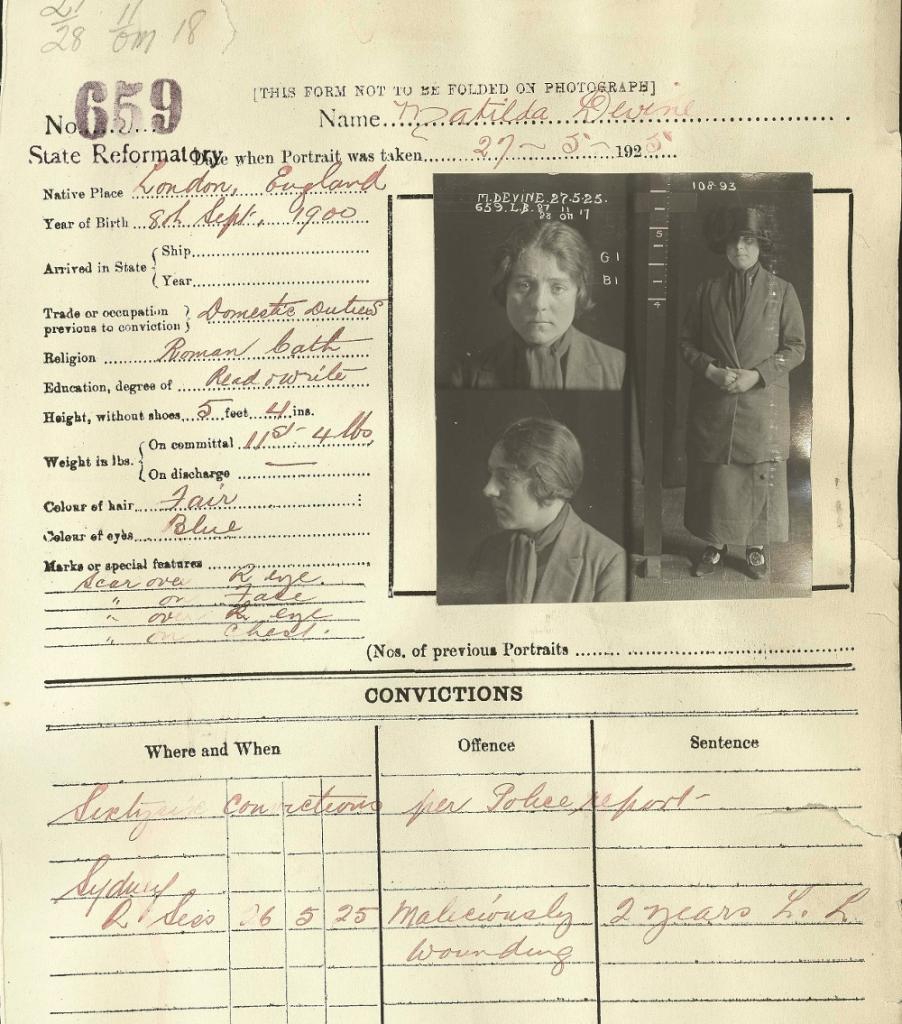 659
[THIS FORM NOT TO BE FOLDED ON PHOTOGRAPH]
No.
Name Matilda Devine
State Reformatory
Date when Portrait was taken 27-5-1925
Native Place London, England
Year of Birth 8th Sept. 1900
Arrived in State { Ship
Year
Trade or occupation previous to conviction } Domestic Duties
Religion Roman Cath
Education, degree of Read & write
Height, without shoes 5 feet 4 ins.
Weight in lbs. { On committal 11st- 4 lbs
On discharge —
Colour of hair Fair
Colour of eyes Blue
Marks or special features
Scar over R eye.
" on Face
" over R eye
" on Chest.
M. DEVINE. 27.5.25.
659. L.B.
G1
B1
108 93
5
4
(Nos. of previous Portraits
CONVICTIONS
Where and When Offence Sentence
convictions per Police report-
Sydney
Q Sess 26 5 25 Maliciously 2 years L. L.
wounding